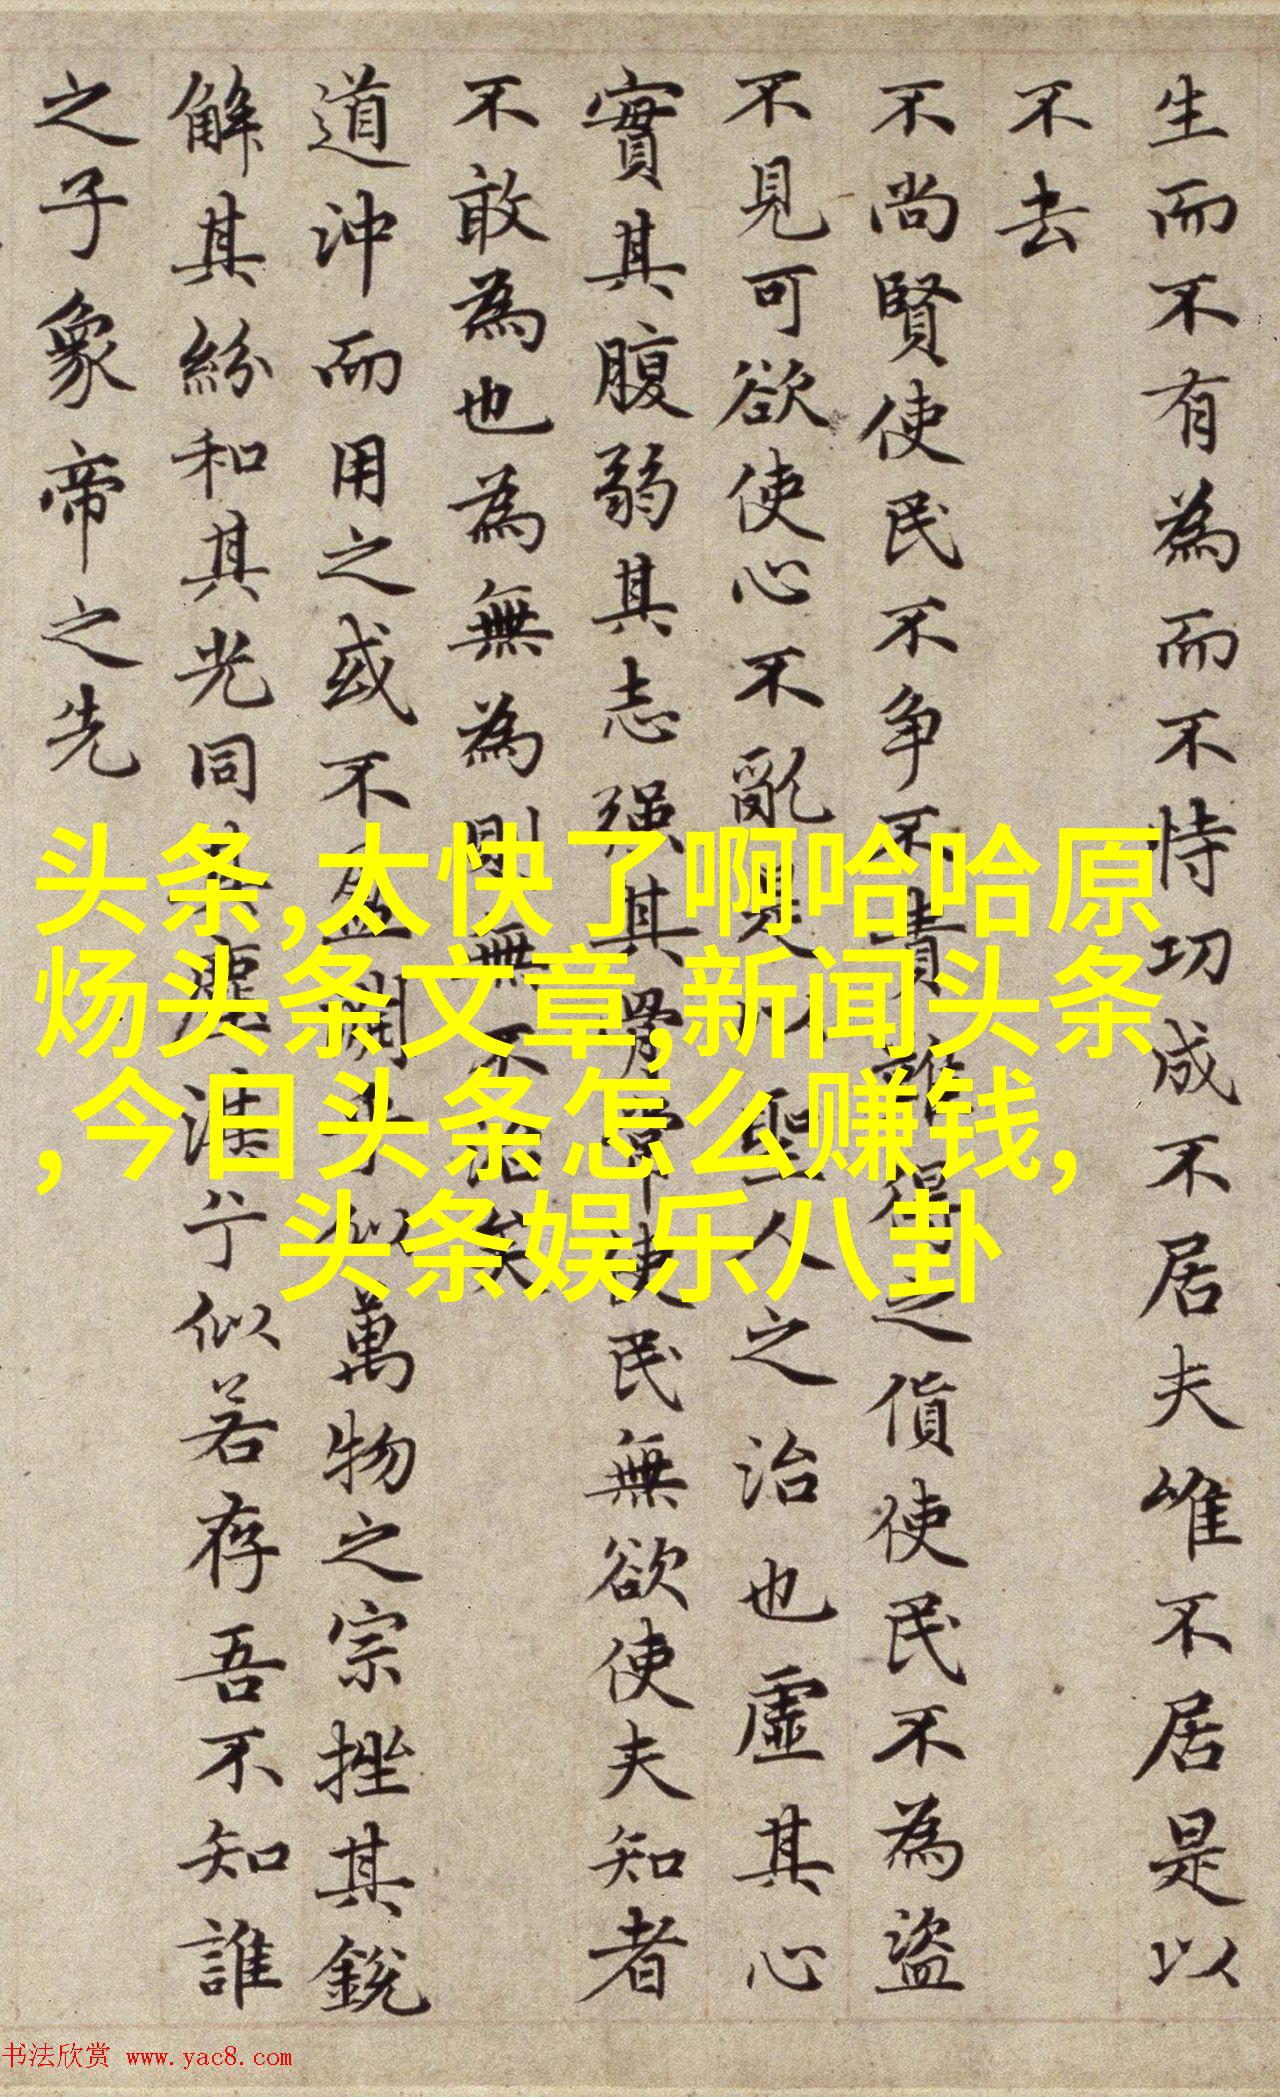 生而不有為而不恃功成不居夫唯不居是以
不去
不尚賢使民不争不貴難得之貨使民不為盜
不見可欲使心不亂是以聖人之治也虛其心
實其腹弱其志强其骨常使民無欲使夫知者
不敢為也為無為則無不治矣
道沖而用之或不盈淵乎似萬物之宗挫其銳
解其紛和其光同其塵湛兮似若存吾不知誰
之子象帝之先
头条,太快了啊哈哈原
炀头条文章,新闻头条
,今日头条怎么赚钱,
头条娱乐八卦
书法欣赏 www.yac8.com